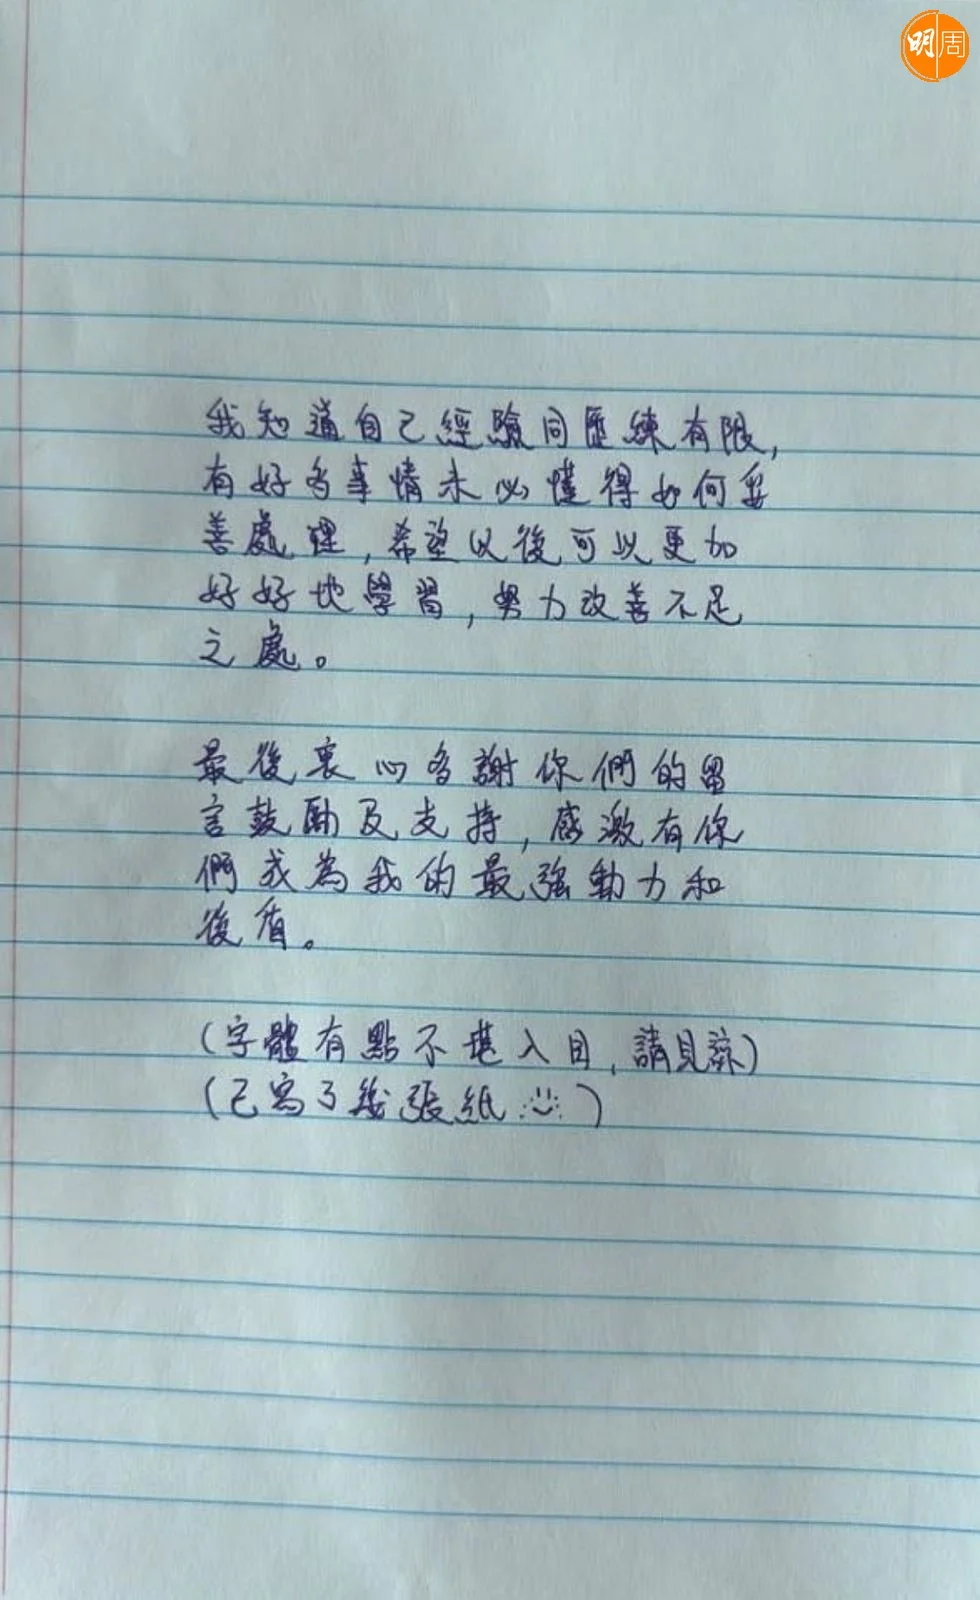 明周
我知道自己經驗同匯練有限,
有好多事情未必懂得如何妥
善處理,希望以後可以更加
好好地學習,努力改善不足
之處。
最後衷心多謝你們的留
言鼓勵及支持,感激有你
們成為我的最強動力和
後盾。
(字體有點不堪入目,請見諒)
(已寫了幾張紙)